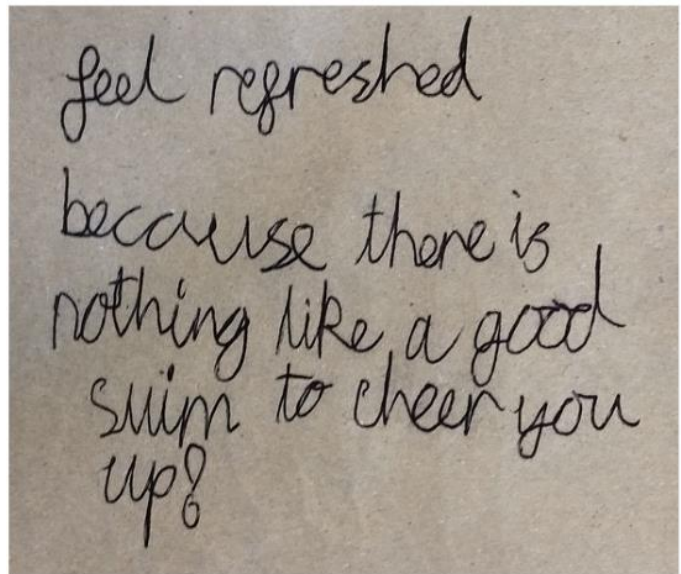 feel refreshed
because there is
nothing like a good
swim to cheer you
up!